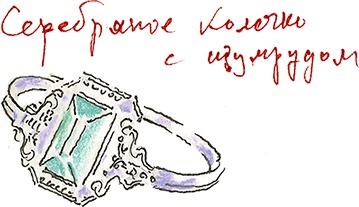 Серебряное колечко
с изумрудом